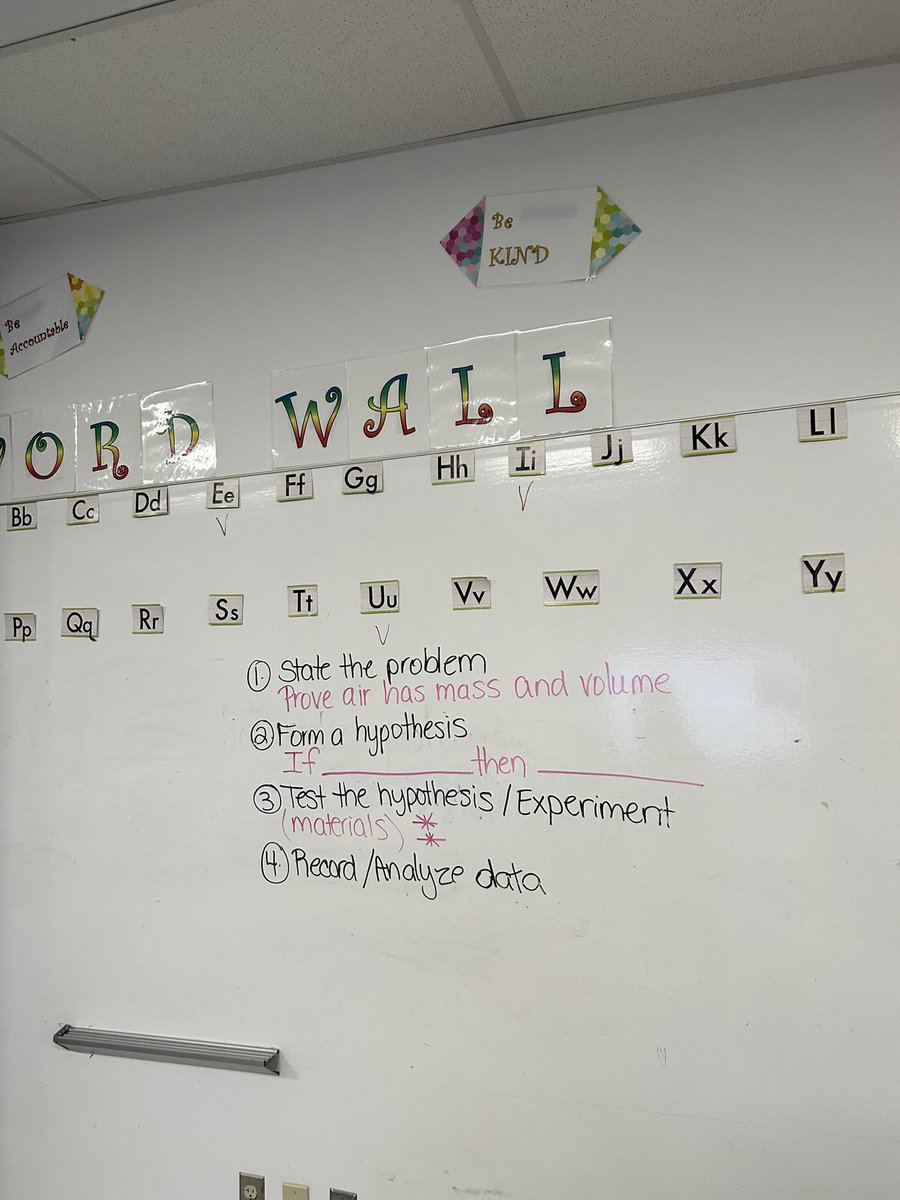 Be
KIND
Be
Accountable
ORD WALL
Bb Cc Dd Ee Ff Gg Hh Ii Jj Kk Ll
V V
Pp Qq Rr Ss Tt Uu Vv Ww Xx Yy
V
1. State the problem
Prove air has mass and volume
2 Form a hypothesis
If __________ then __________
3 Test the hypothesis / Experiment
(materials) *
*
4. Record / Analyze data